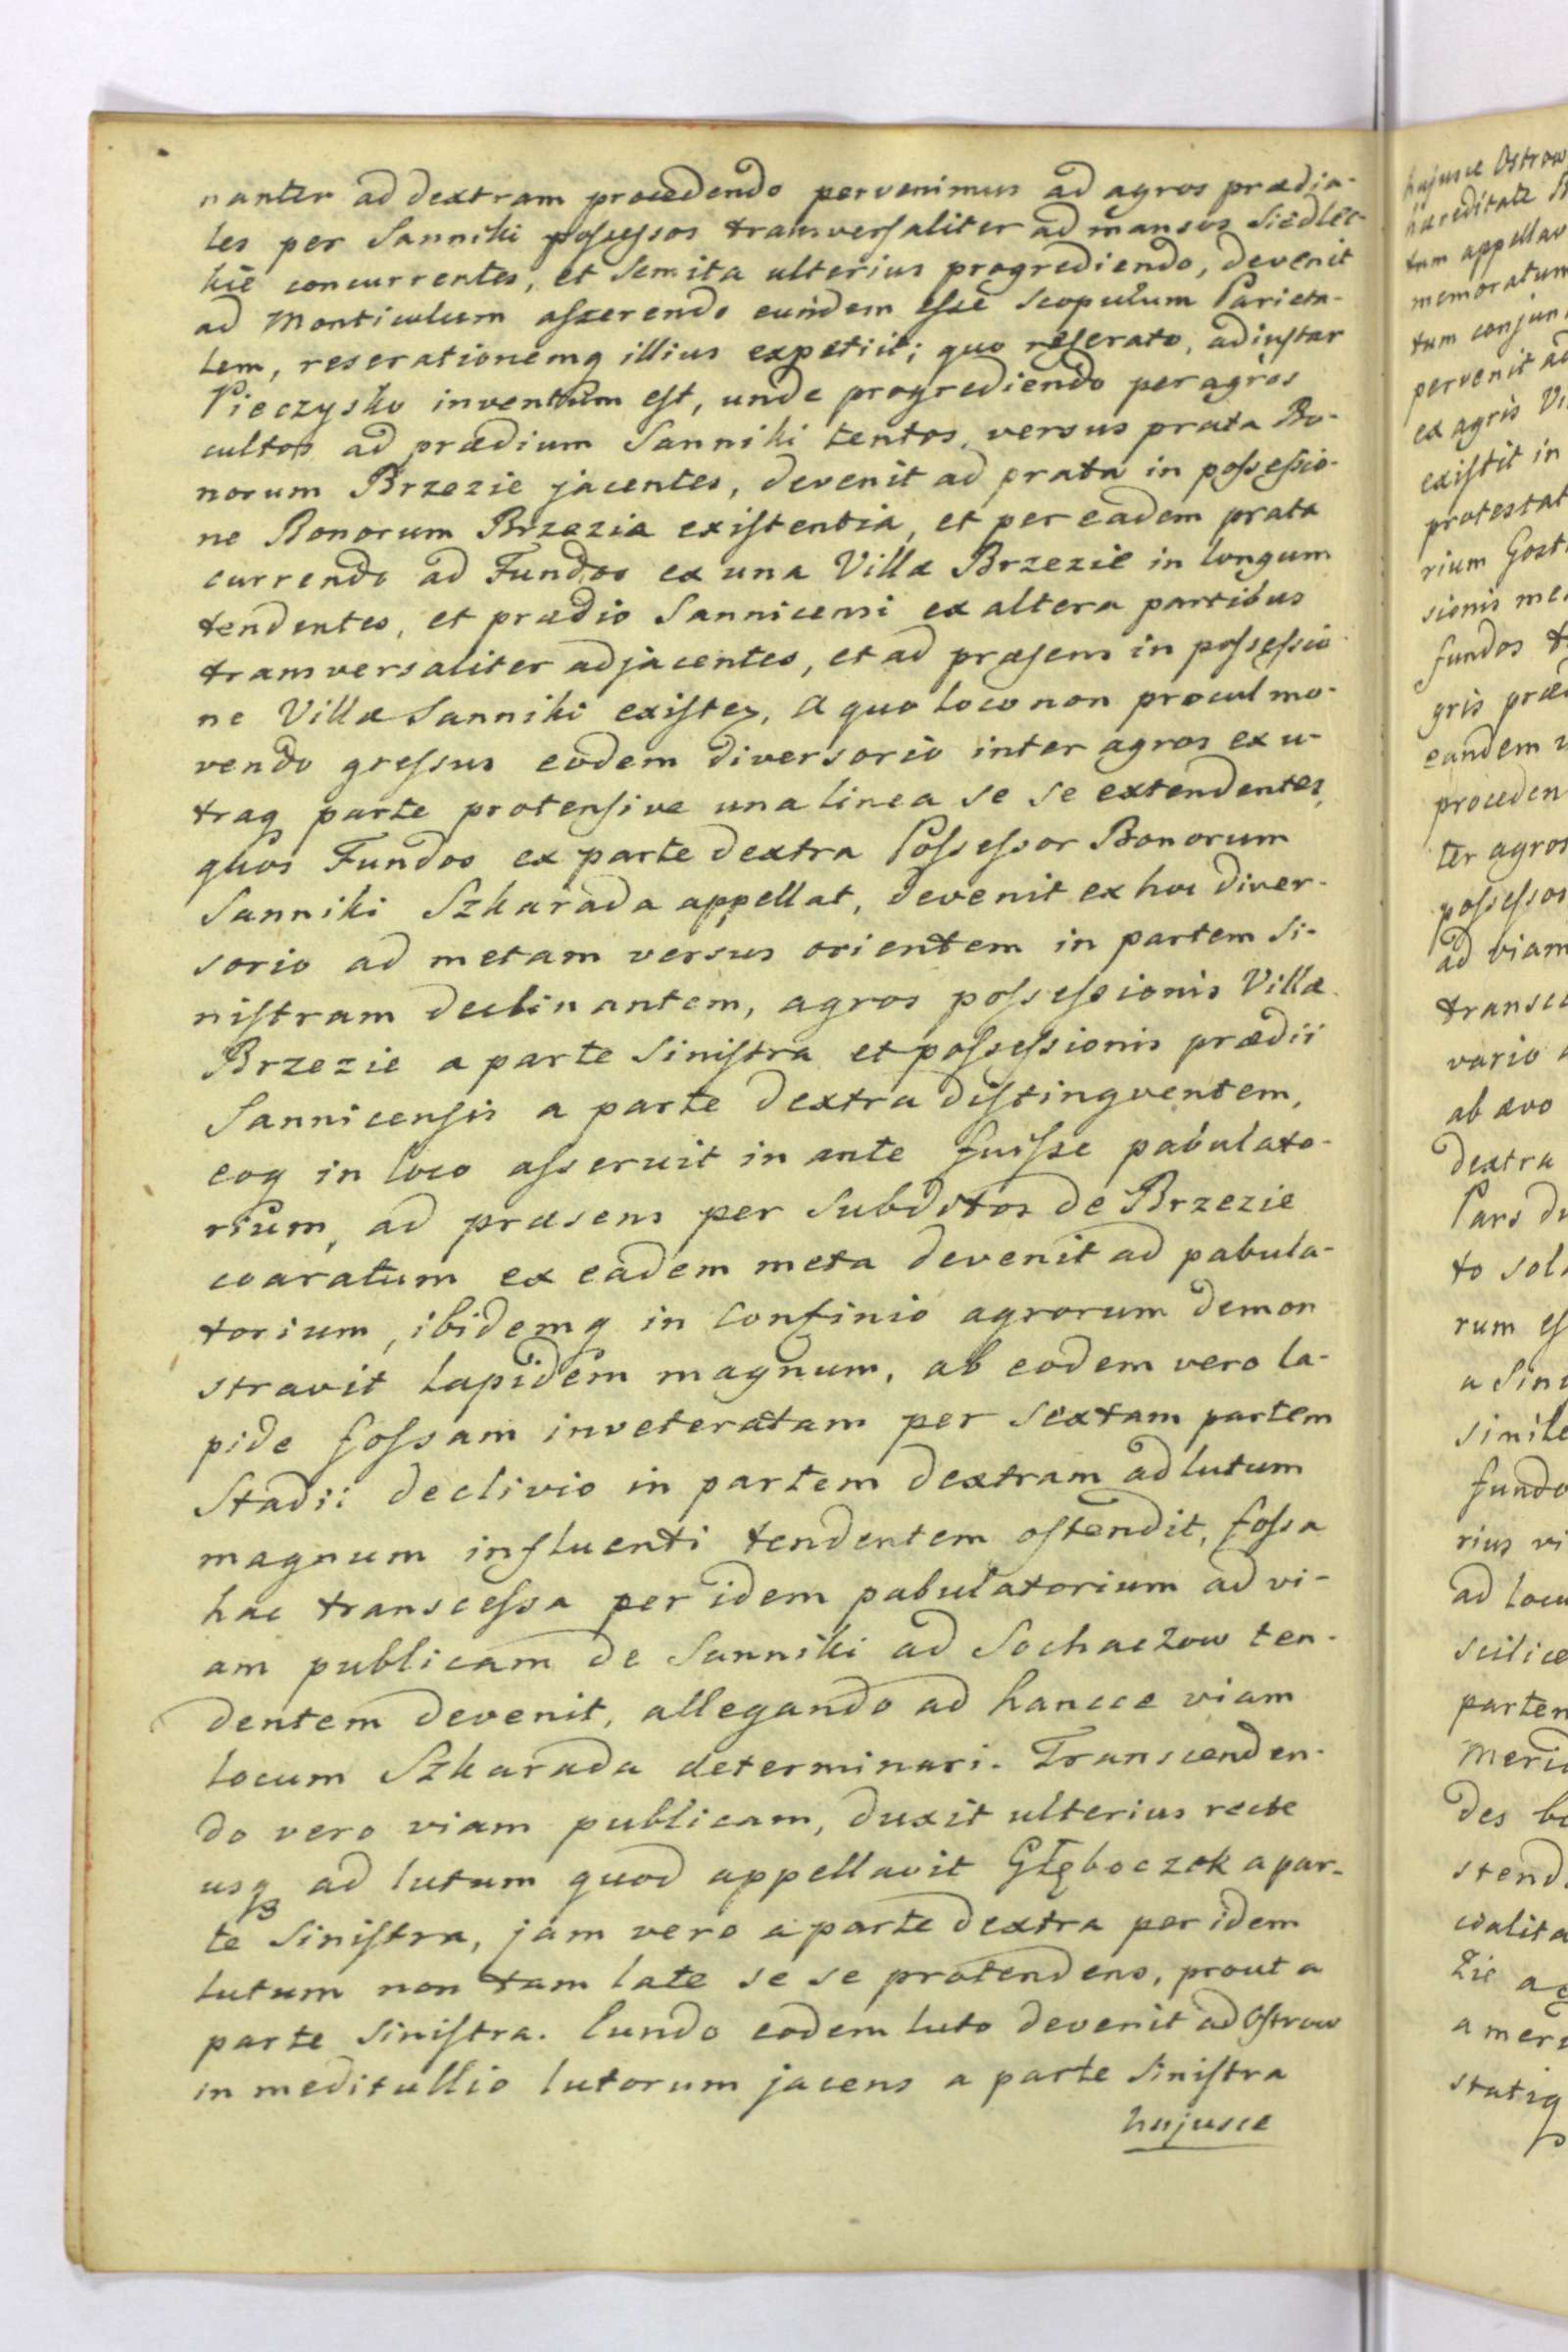 nanter ad dextram procedendo pervenimus ad agros prædia-
les per Sanniki possessos transversaliter ad mansos Siedlec-
kie concurrentes, et semita ulterius progrediendo, devenit
ad Monticulum asserendo eundem esse Scopulum Parieta-
lem, reserationemq illius expetiit; quo reserato, ad instar
Pieczysko inventum est, unde progrediendo per agros
cultos ad prædium Sanniki tentos, versus prata Bo-
norum Brzezie jacentes, devenit ad prata in possessio-
ne Bonorum Brzezia existentia, et per eadem prata
currendo ad Fundos ex una Villæ Brzezie in longum
tendentes, et prædio Sannicensi ex altera partibus
transversaliter adjacentes, et ad præsens in possessio-
ne Villæ Sanniki existeñ, A quo loco non procul mo-
vendo gressus eodem diversorio inter agros ex u-
traq parte protensive una linea se se extendentes,
quos Fundos ex parte dextra Possessor Bonorum
Sanniki Szkarada appellat, devenit ex hoc diver-
sorio ad metam versus orientem in partem si-
nistram declinantem, agros possessionis Villæ
Brzezie a parte Sinistra et possessionis prædii
Sannicensis a parte dextra distingventem,
eoq in loco asseruit in ante fuisse pabulato-
rium, ad præsens per Subditos de Brzezie
coaratum ex eadem meta devenit ad pabula-
torium, ibidemq in Confinio agrorum demon
stravit lapidem magnum, ab eodem vero la-
pide fossam inveteratam per sextam partem
Stadii declivio in partem dextram ad lutum
magnum influenti tendentem ostendit, fossa
hac transcessa per idem pabulatorium ad vi-
am publicam de Sanniki ad Sochaczow ten-
dentem devenit, allegando ad hancce viam
locum Szkarada determinari. Transcenden-
do vero viam publicam, duxit ulterius recte
usq ad lutum quod appellavit Głęboczek a par-
te Sinistra, jam vero a parte dextra per idem
lutum non tam late se se protendens, prout a
parte Sinistra. Eundo eodem luto devenit ad Ostrow
in meditullio lutorum jacens a parte Sinistra
hujusce
hujusce Ostrow
hæreditate
tum appellav
memoratum
tum conjun
pervenit ad
ex agris Vi
existit in
protestat
rium Gost
sionis me
fundos
gris præd
eandem
proceden
ter agros
possessos
ad viam
transce
vario
ab ævo
dextra
Pars
to sol
rum es
a Sini
simile
fundo
rius vi
ad locu
scilice
partem
Merid
des
stend
coalita
zie
a meri
statiq